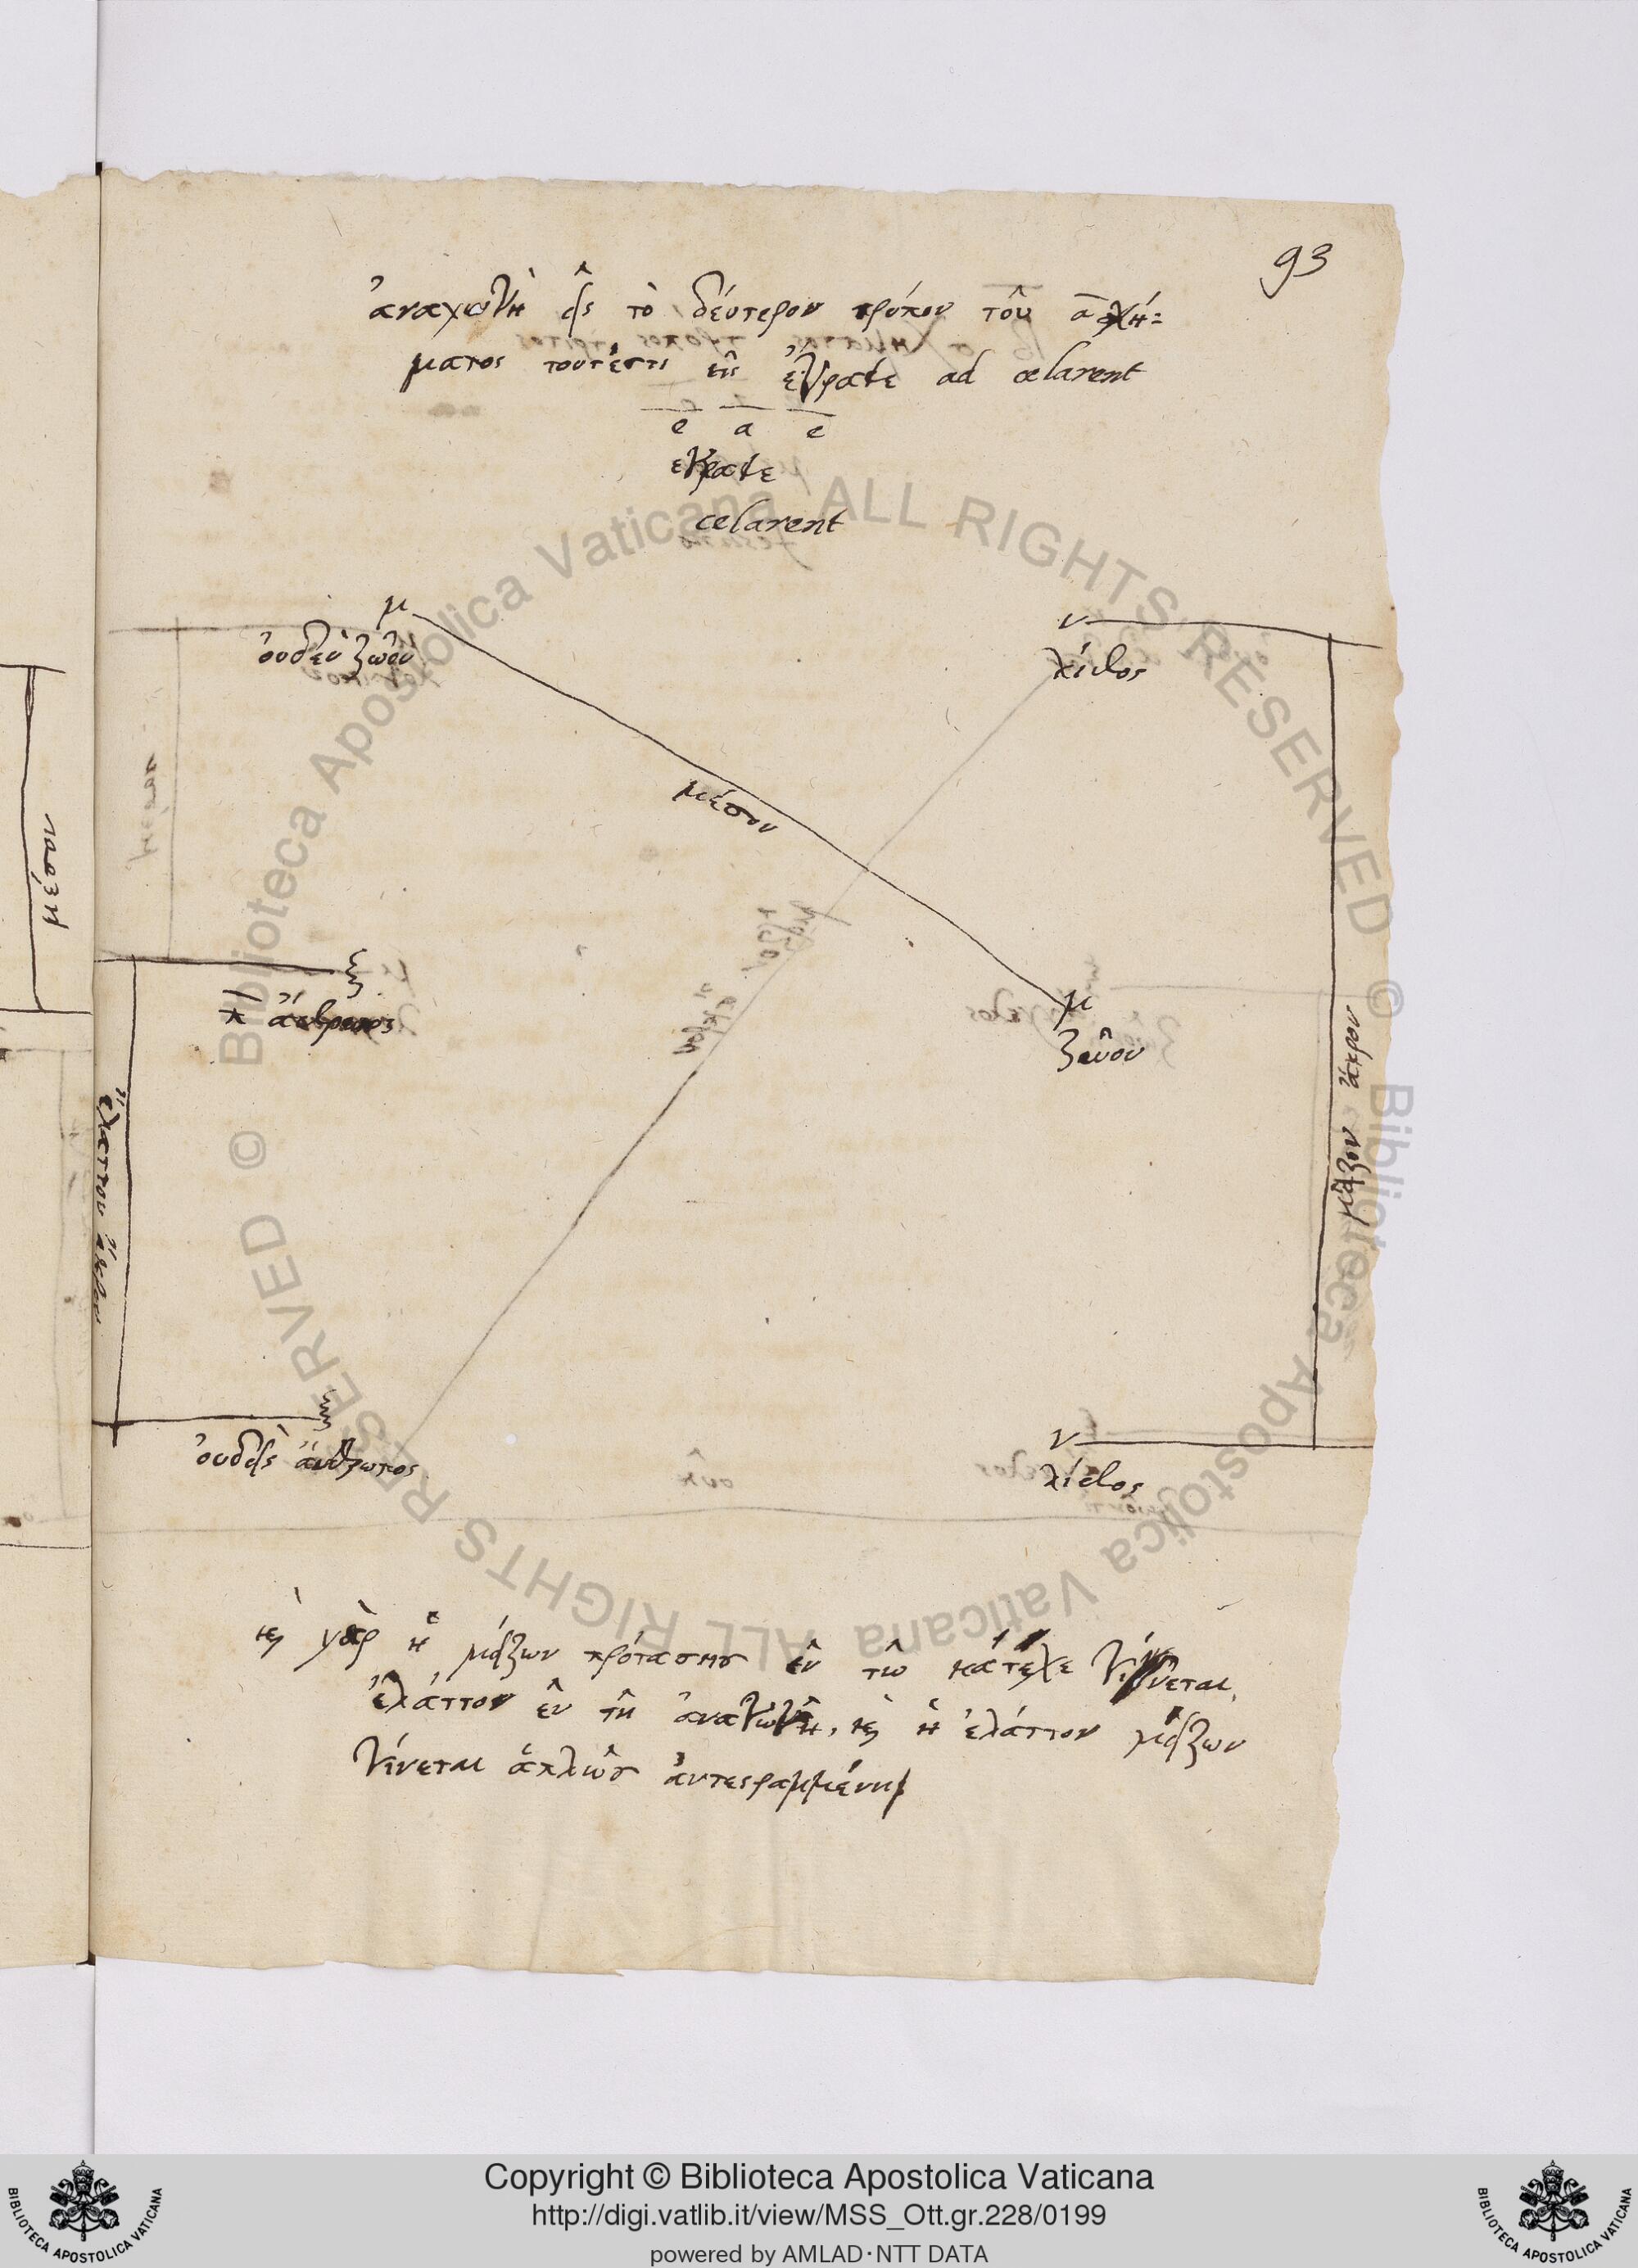 93
ἀναχωγὴ εἰς τὸ δεύτερον τρόπον τοῦ α σχή=
ματος τουτέστι εἰς ἔγραψε ad celarent
e a e
ἔγραψε
celarent
μ
οὐδὲν ζῶον
ν
λίθος
μέσον
ξ
ἄνθρωπος
μ
ζῶον
ἔλαττον ἄκρον
μεῖζον ἄκρον
ξ
οὐδεὶς ἄνθρωπος
ν
λίθος
καὶ γὰρ ἡ μείζων πρότασις ἐν τῶ κάτεχε γίνεται
ἐλάττον ἐν τῆ ἀναγωγῆ, καὶ ἡ ἐλάττον μείζων
γίνεται ἁπλῶς ἀντεστραμμένη
μέσον
Biblioteca Apostolica Vaticana ALL RIGHTS RESERVED ©
Biblioteca Apostolica Vaticana ALL RIGHTS RESERVED ©
Copyright © Biblioteca Apostolica Vaticana
http://digi.vatlib.it/view/MSS_Ott.gr.228/0199
powered by AMLAD·NTT DATA
BIBLIOTECA APOSTOLICA VATICANA
BIBLIOTECA APOSTOLICA VATICANA